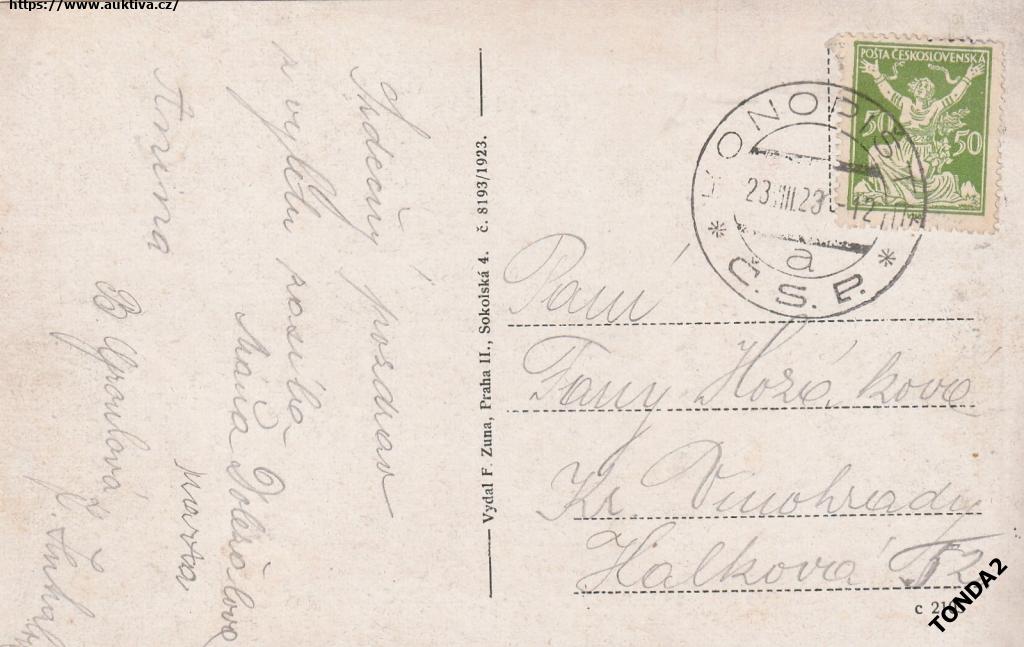 https://www.auktiva.cz/
Srdečný pozdrav
z výletu posílá
Máňa Doležalova
Anina
Vydal F. Zuna, Praha II., Sokolská 4. č. 8193/1923.
POŠTA ČESKOSLOVENSKÁ
50 50
KONOPIŠT
23.III.23 - 12
a
* Č.S.P. *
Paní
Fany Horáková
Kr. Vinohrady
Halková
c 21
TONDA2